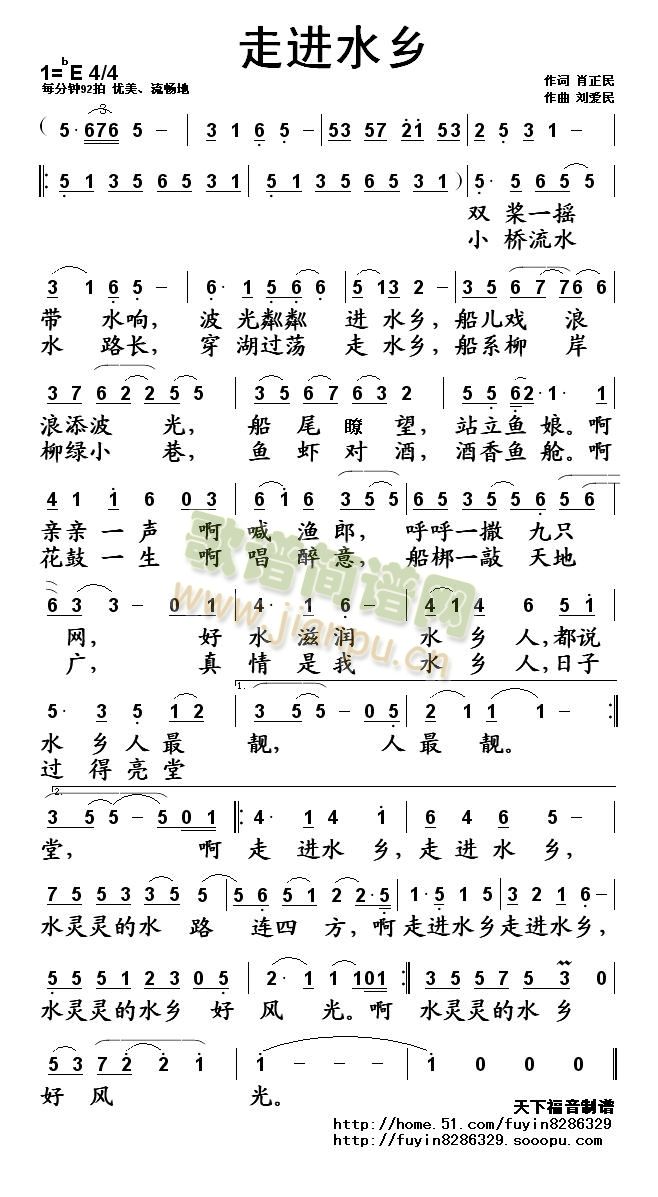 走进水乡
1=ᵇE 4/4
每分钟92拍 优美、流畅地
作词 肖正民
作曲 刘爱民
( 5· 676 5 － | 3 1 6 5 － | 53 57 21 53 | 2 5 3 1 － |
|: 5 1 3 5 6 5 3 1 | 5 1 3 5 6 5 3 1 ) | 5· 5 6 5 5 |
双 桨一摇
小 桥流水
3 1 6 5 － | 6· 1 5 6 6 | 5 13 2 － | 3 5 6 7 76 6 |
带 水响, 波 光粼粼 进 水乡, 船儿戏 浪
水 路长, 穿 湖过荡 走 水乡, 船系柳 岸
3 7 6 2 2 5 5 | 3 5 6 7 6 3 2 | 5 5 6 2· 1· 1 |
浪添波 光, 船 尾 瞭 望, 站立鱼 娘。啊
柳绿小 巷, 鱼 虾 对 酒, 酒香鱼 舱。啊
4 1 1 6 0 3 | 6 1 6 3 5 5 | 6 5 3 5 5 6 5 6 |
亲亲 一 声 啊 喊 渔 郎, 呼呼一撒 九只
花鼓 一 生 啊 唱 醉 意, 船梆一敲 天地
6 3 3 － 0 1 | 4· 1 6 － | 4 1 4 6 5 1 |
网, 好 水 滋 润 水 乡 人,都说
广, 真 情 是 我 水 乡 人,日子
5· 3 5 1 2 | 1. 3 5 5 － 0 5 | 2 1 1 － :|
水 乡 人 最 靓, 人 最 靓。
过 得 亮 堂
2. 3 5 5 － 5 0 1 |: 4· 1 4 1 | 6 4 6 5 |
堂, 啊 走 进水 乡,走 进 水 乡,
7 5 5 3 5 7 | 5 6 5 1 2 2·5 | 1·5 1 5 | 3 2 1 6 － |
水灵灵的水 路 连四 方,啊走进水乡走进水乡,
5 5 5 1 2 3 0 5 | 2· 1 1 101 :| 3 5 5 7 5 3 0 |
水灵灵的水乡 好 风 光。啊 水灵灵的水 乡
5 3 7 2 2 1 | 1 － － － | 1 0 0 0 |
好 风 光。
歌谱简谱网
www.jianpu.cn
天下福音制谱
http://home.51.com/fuyin8286329
http://fuyin8286329.sooopu.com